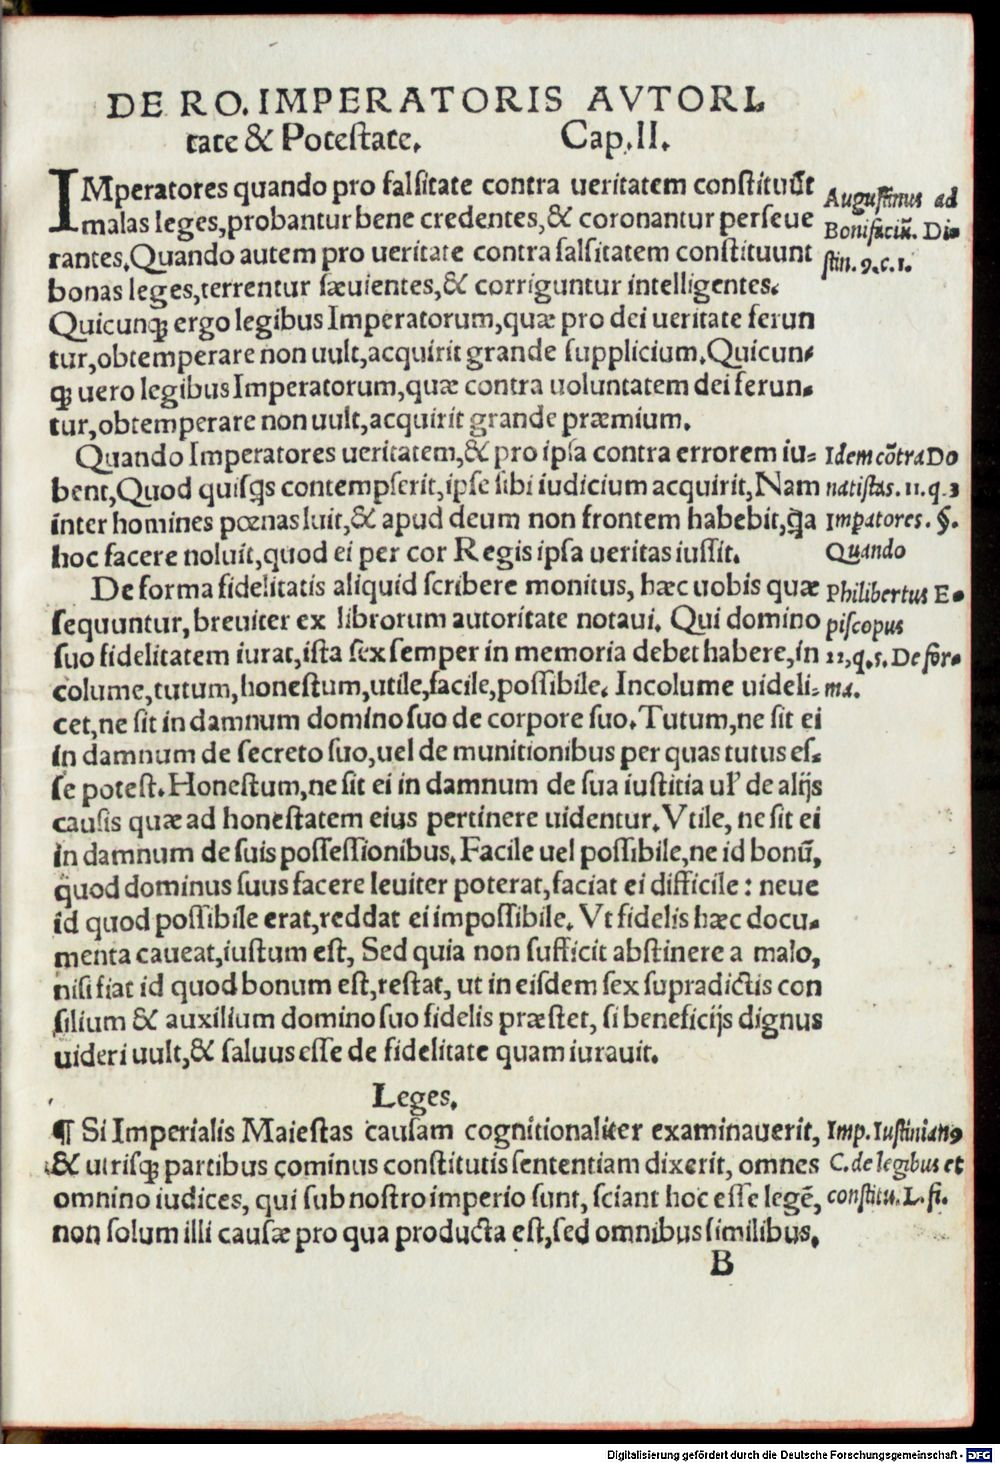 DE RO. IMPERATORIS AVTORI-
tate & Potestate. Cap. II.
IMperatores quando pro falsitate contra ueritatem constituũt
malas leges, probantur bene credentes, & coronantur perseue
rantes. Quando autem pro ueritate contra falsitatem constituunt
bonas leges, terrentur sæuientes, & corriguntur intelligentes.
Quicunqꝫ ergo legibus Imperatorum, quæ pro dei ueritate ferun
tur, obtemperare non uult, acquirit grande supplicium. Quicun-
qꝫ uero legibus Imperatorum, quæ contra uoluntatem dei ferun-
tur, obtemperare non uult, acquirit grande præmium.
Augustinus ad
Bonifaciũ. Di-
stin. 9. c. 1.
Quando Imperatores ueritatem, & pro ipsa contra errorem iu-
bent, Quod quisꝗs contempserit, ipse sibi iudicium acquirit, Nam
inter homines pœnas luit, & apud deum non frontem habebit, ꝗa
hoc facere noluit, quod ei per cor Regis ipsa ueritas iussit.
Idem cõtra Do
natistas. 11. q. 3
Impatores. §.
Quando
De forma fidelitatis aliquid scribere monitus, hæc uobis quæ
sequuntur, breuiter ex librorum autoritate notaui. Qui domino
suo fidelitatem iurat, ista sex semper in memoria debet habere, in
colume, tutum, honestum, utile, facile, possibile. Incolume uideli-
cet, ne sit in damnum domino suo de corpore suo. Tutum, ne sit ei
in damnum de secreto suo, uel de munitionibus per quas tutus es-
se potest. Honestum, ne sit ei in damnum de sua iustitia ul' de alijs
causis quæ ad honestatem eius pertinere uidentur. Vtile, ne sit ei
in damnum de suis possessionibus. Facile uel possibile, ne id bonũ,
quod dominus suus facere leuiter poterat, faciat ei difficile: neue
id quod possibile erat, reddat ei impossibile. Vt fidelis hæc docu-
menta caueat, iustum est, Sed quia non sufficit abstinere a malo,
nisi fiat id quod bonum est, restat, ut in eisdem sex supradictis con
silium & auxilium domino suo fidelis præstet, si beneficijs dignus
uideri uult, & saluus esse de fidelitate quam iurauit.
Philibertus E-
piscopus
22. q. 5. De for-
ma.
Leges.
¶ Si Imperialis Maiestas causam cognitionaliter examinauerit,
& utrisqꝫ partibus cominus constitutis sententiam dixerit, omnes
omnino iudices, qui sub nostro imperio sunt, sciant hoc esse legẽ,
non solum illi causæ pro qua producta est, sed omnibus similibus.
Imp. Iustinianꝰ
C. de legibus et
constitu. L. fi.
B
Digitalisierung gefördert durch die Deutsche Forschungsgemeinschaft - DFG